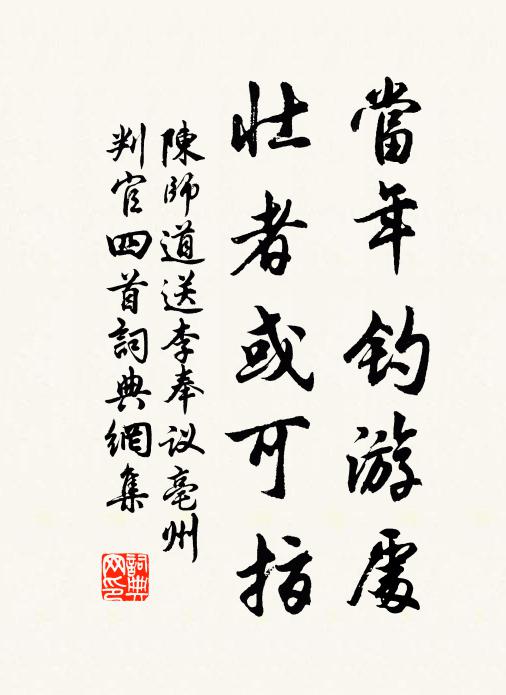 當年釣游處
壯者或可指
陳師道送李奉议亳州
判官四首詞典網集
詞典网印